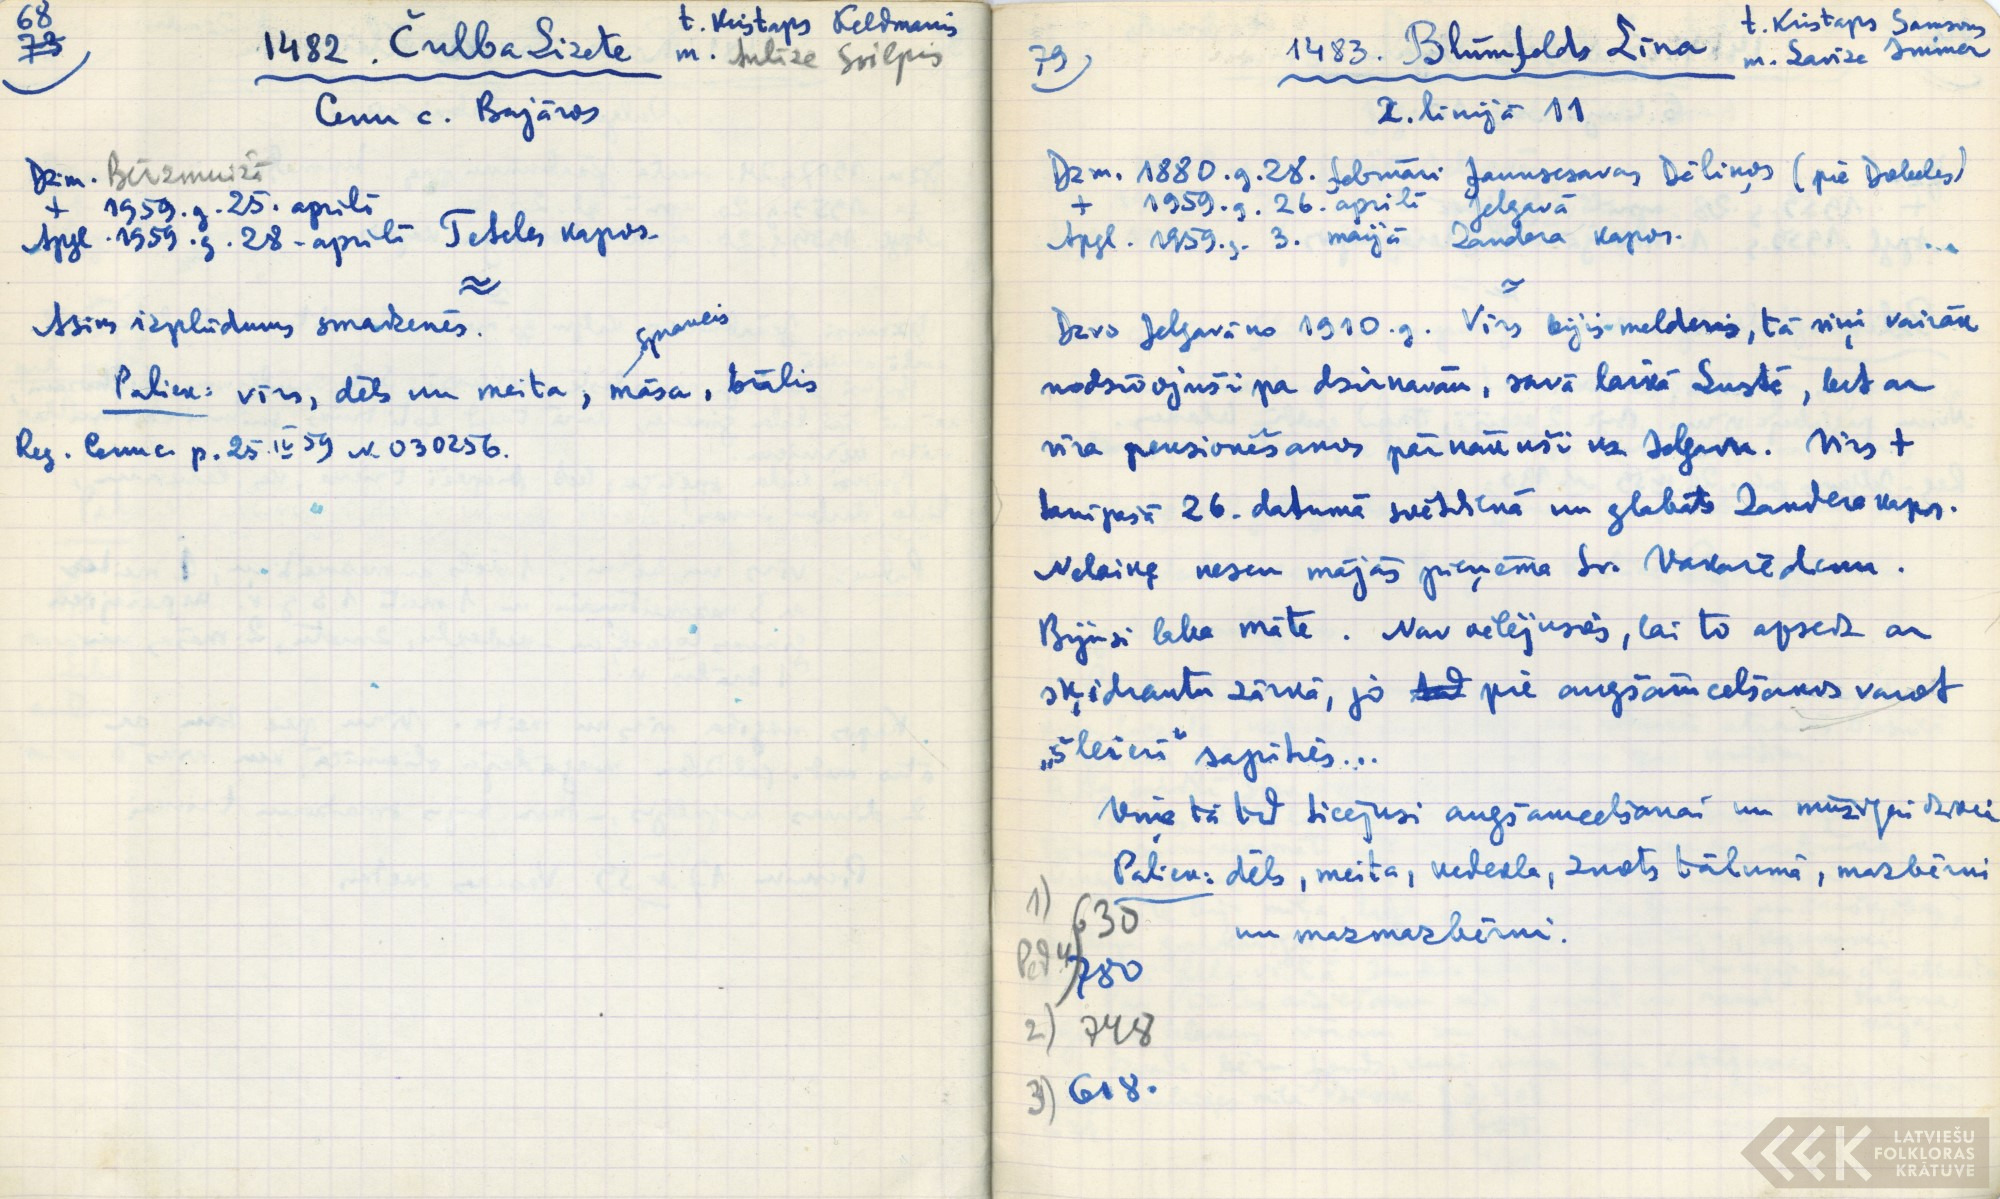 68
73
1482. Čulba Lizete
t. Kristaps Feldmanis
m. Svilpis
Cenu c. Bajāros
Dzim. Bērzmuižā
+ 1959.g. 25. aprīlī
Apgl. 1959.g. 28. aprīlī Teteles kapos.
≈
Asins izplūdums smadzenēs.
Paliek: vīrs, dēls un meita, māsa, brālis
Reg. Cenu c. p. 25.IV 59 N 030256.
79
1483. Blūmfelds Līna
t. Kristaps Samsons
m. Lavīze
2. līnijā 11
Dzm. 1880.g. 28. februāri Jaunsesavas Dēliņos (pie Dobeles)
+ 1959.g. 26. aprīlī Jelgavā
Apgl. 1959.g. 3. maijā Zandera kapos. ...
≈
Dzīvo Jelgavā no 1910.g. Vīrs bijis melderis, tā viņi vairāk
nodzīvojuši pa dzirnavām, savā laikā Lustē, bet ar
vīra pensionēšanos pārnākuši uz Jelgavu. Vīrs +
tanīpašā 26. datumā svētdienā un glabāts Zandera kapos.
Nelaiķe nesen mājās pieņēma Sv. Vakarēdienu.
Bijusi laba māte. Nav vēlējusies, lai to apsedz ar
šķidrautu zārkā, jo tad pie augšāmcelšanos varot
„šleierī" sapīties...
Viņa tā tad ticējusi augšāmcelšanai un mūžīgai dzīvei
Paliek: dēls, meita, vedekla, znots tālumā, mazbērni
un mazmazbērni.
1) 630
780
2) 748
3) 618.
LATVIEŠU
FOLKLORAS
KRĀTUVE